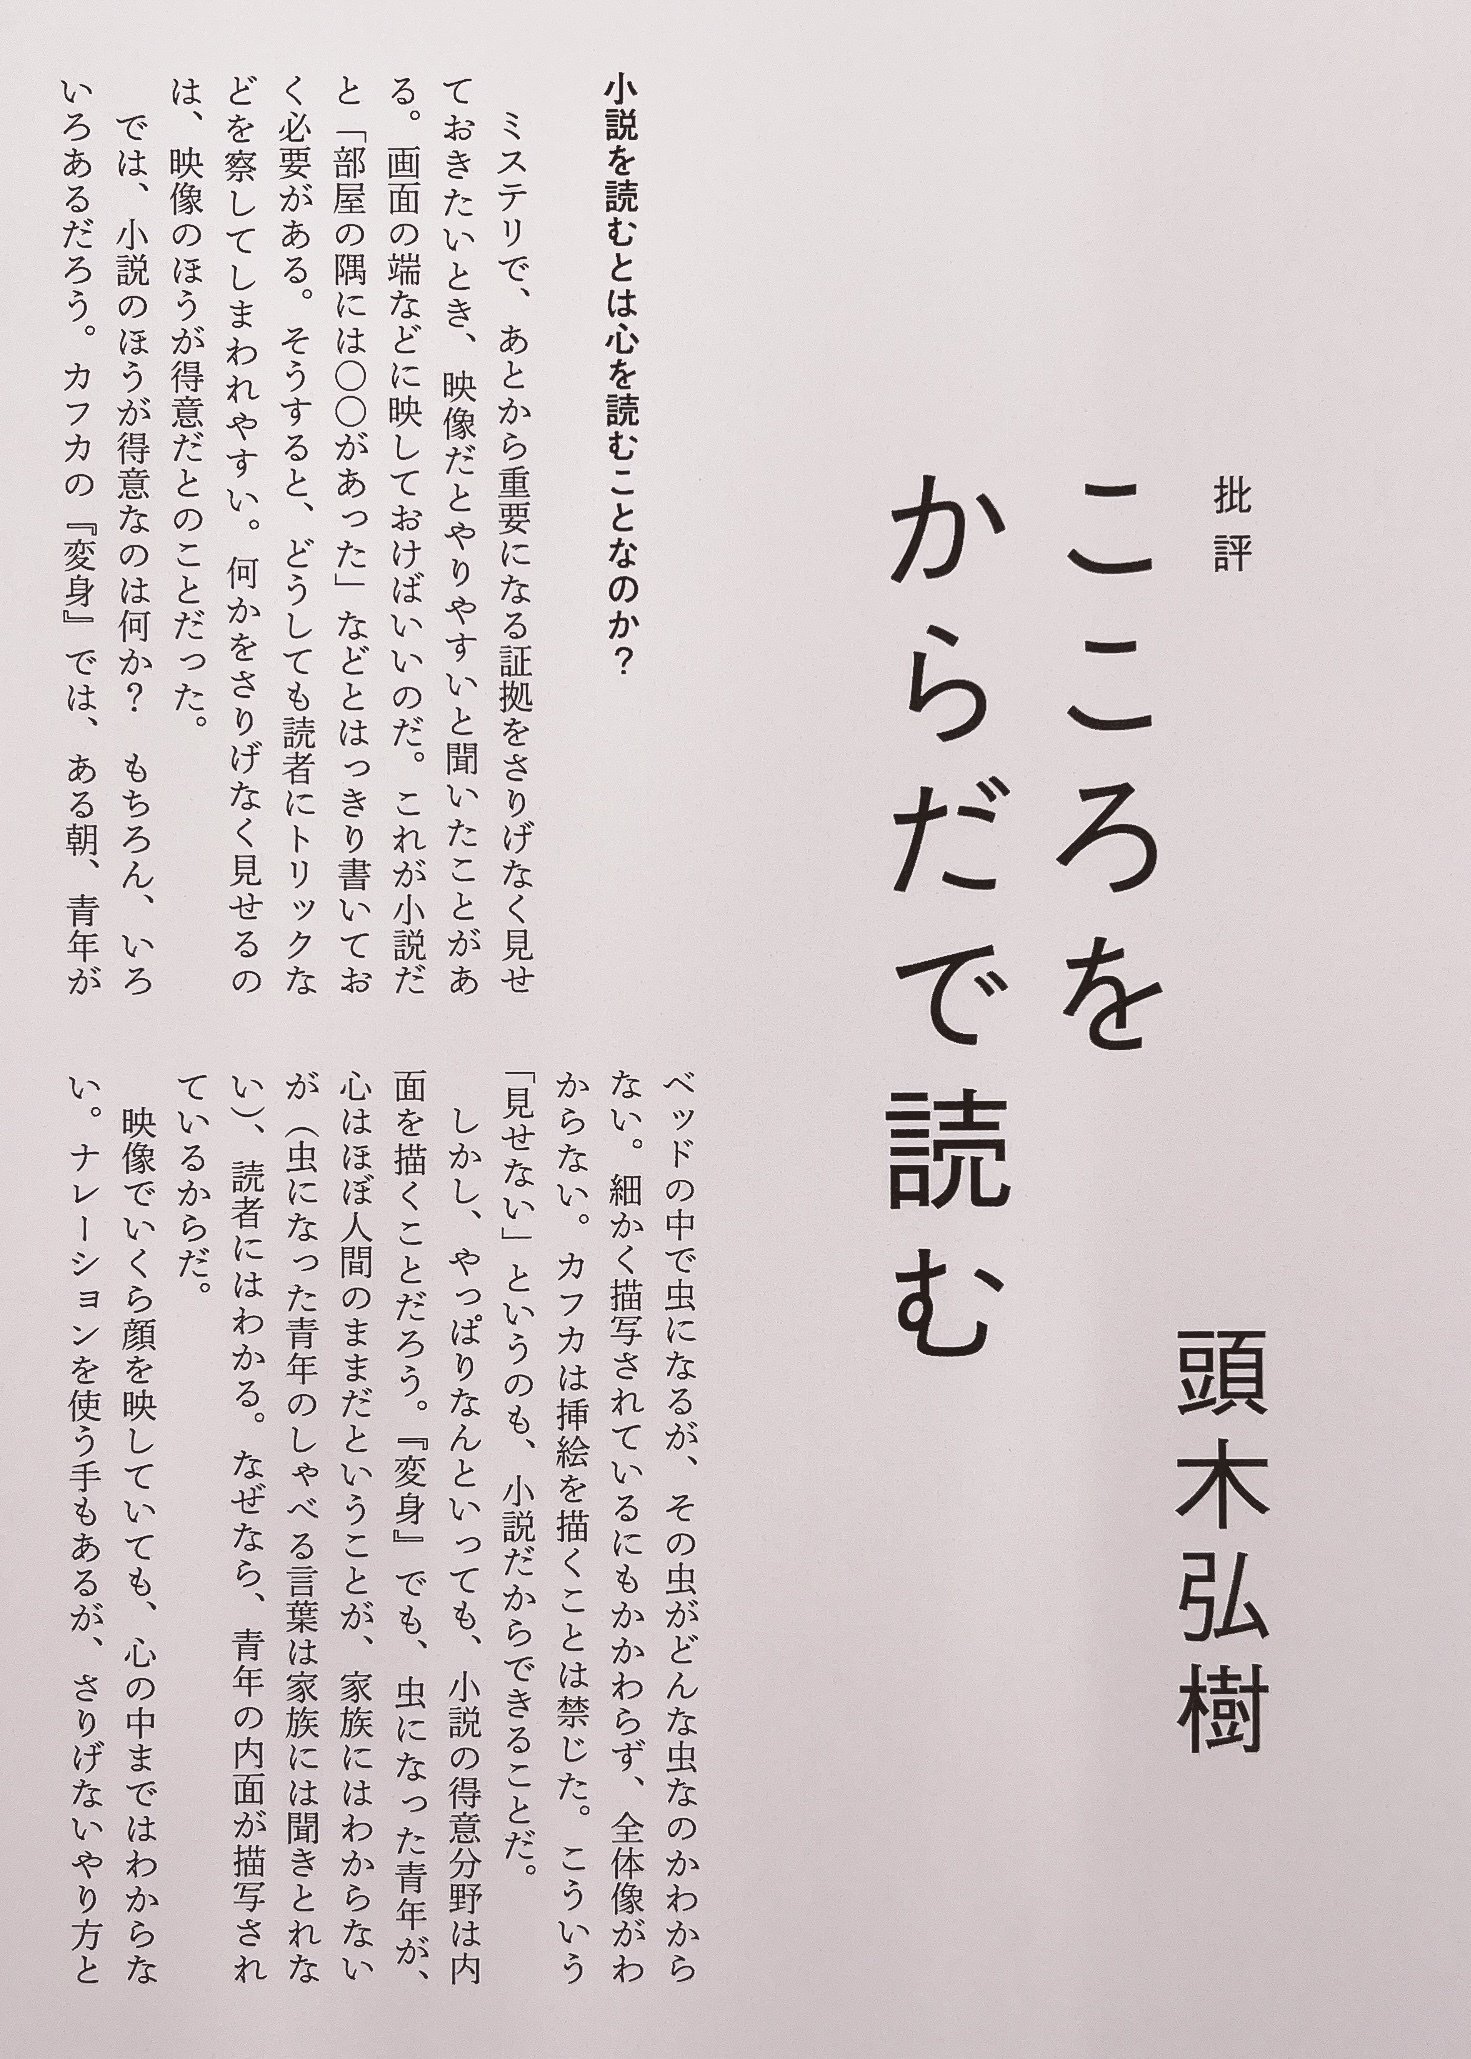 批評
こころを
からだで読む
頭木弘樹
小説を読むとは心を読むことなのか？
ミステリで、あとから重要になる証拠をさりげなく見せ
ておきたいとき、映像だとやりやすいと聞いたことがあ
る。画面の端などに映しておけばいいのだ。これが小説だ
と「部屋の隅には〇〇があった」などとはっきり書いてお
く必要がある。そうすると、どうしても読者にトリックな
どを察してしまわれやすい。何かをさりげなく見せるの
は、映像のほうが得意だとのことだった。
では、小説のほうが得意なのは何か？　もちろん、いろ
いろあるだろう。カフカの『変身』では、ある朝、青年が
ベッドの中で虫になるが、その虫がどんな虫なのかわから
ない。細かく描写されているにもかかわらず、全体像がわ
からない。カフカは挿絵を描くことは禁じた。こういう
「見せない」というのも、小説だからできることだ。
しかし、やっぱりなんといっても、小説の得意分野は内
面を描くことだろう。『変身』でも、虫になった青年が、
心はほぼ人間のままだということが、家族にはわからない
が（虫になった青年のしゃべる言葉は家族には聞きとれな
い）、読者にはわかる。なぜなら、青年の内面が描写され
ているからだ。
映像でいくら顔を映していても、心の中まではわからな
い。ナレーションを使う手もあるが、さりげないやり方と